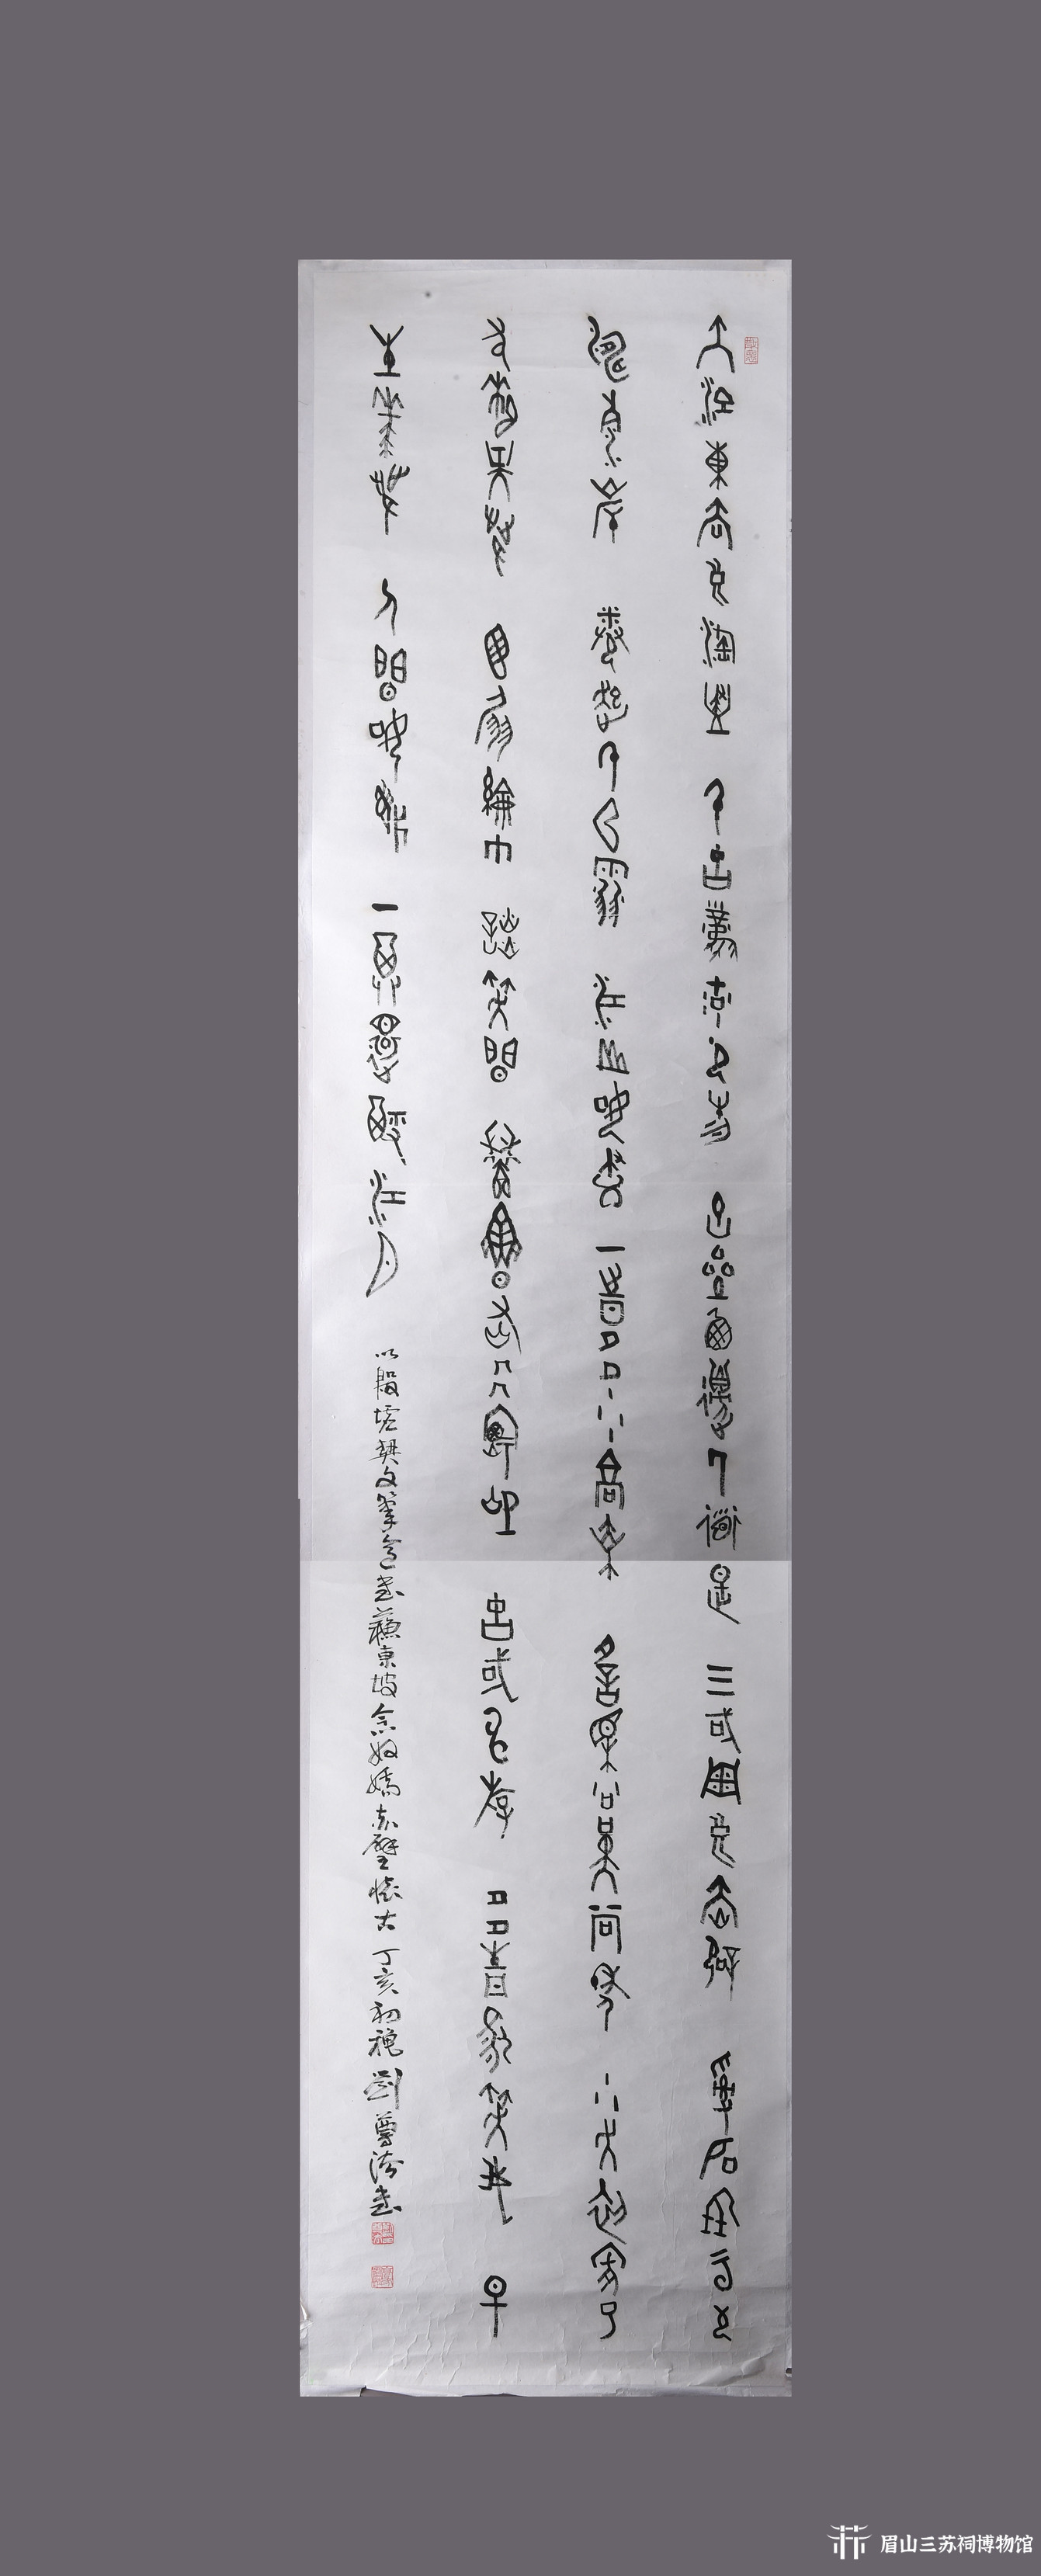 大江東去浪淘盡 千古風流人物 故壘西邊人道是 三國周郎赤壁 亂石穿空驚
濤拍岸 捲起千堆雪 江山如畫 一時多少豪傑 遙想公瑾當年 小喬初嫁了
雄姿英發 羽扇綸巾 談笑間 檣櫓灰飛煙滅 故國神遊 多情應笑我 早
生華髮 人間如夢 一尊還酹江月 以殷墟契文筆意書蘇東坡念奴嬌赤壁懷古 丁亥初穐 劉尊法書
眉山三苏祠博物馆